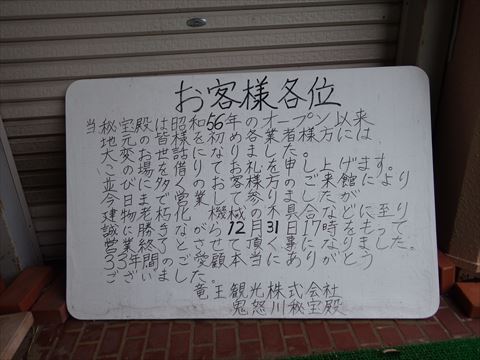 お客様各位
当秘宝殿は昭和56年のオープン以来
地元の皆様を初め各業者様方には
大変お世話になりました。
この場を借りてお礼を申し上げます。
並びに多くのお客様方のご来館により
今日まで営業して参りましたが
建物老朽化、機械の不具合などに至り
誠に勝手ながら12月31日17時をもって
営業終了とさせて頂く事になりました。
33年間のご愛顧本当にありがとう
ございました。
竜王観光株式会社
鬼怒川秘宝殿